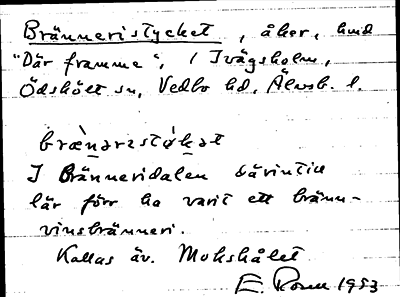 Bränneristycket, åker, hmd
"Där framme", i Ivägsholm,
Ödskölt sn, Vedbo hd, Älvsb. l.
brænarestykat
I Bränneridalen därintill
lär förr ha varit ett bränn-
vinsbränneri.
Kallas äv. Mohshålet
E. 1953